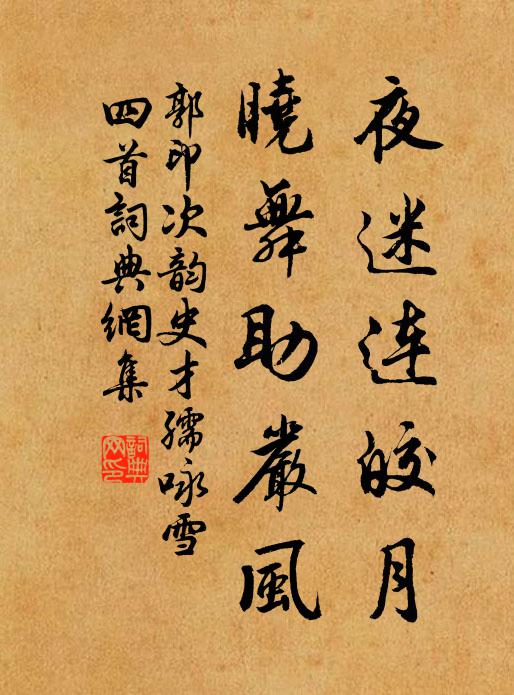 夜迷連皎月
曉舞助嚴風
郭印次韵史才孺咏雪
四首詞典網集
詞典網印